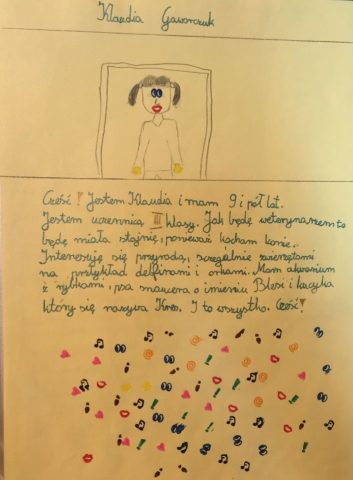 Klaudia Gaworczuk
Cześć! Jestem Klaudia i mam 9 i pół lat.
Jestem uczennicą III klasy. Jak będę weterynarzem to
będę miała stajnię, ponieważ kocham konie.
Interesuję się przyrodą, szczegolnie zwierzętami
na przykład delfinami i orkami. Mam akwarium
z rybkami, psa sznaucera o imieniu Blesi i kucyka
który się nazywa Kres. I to wszystko. Cześć!